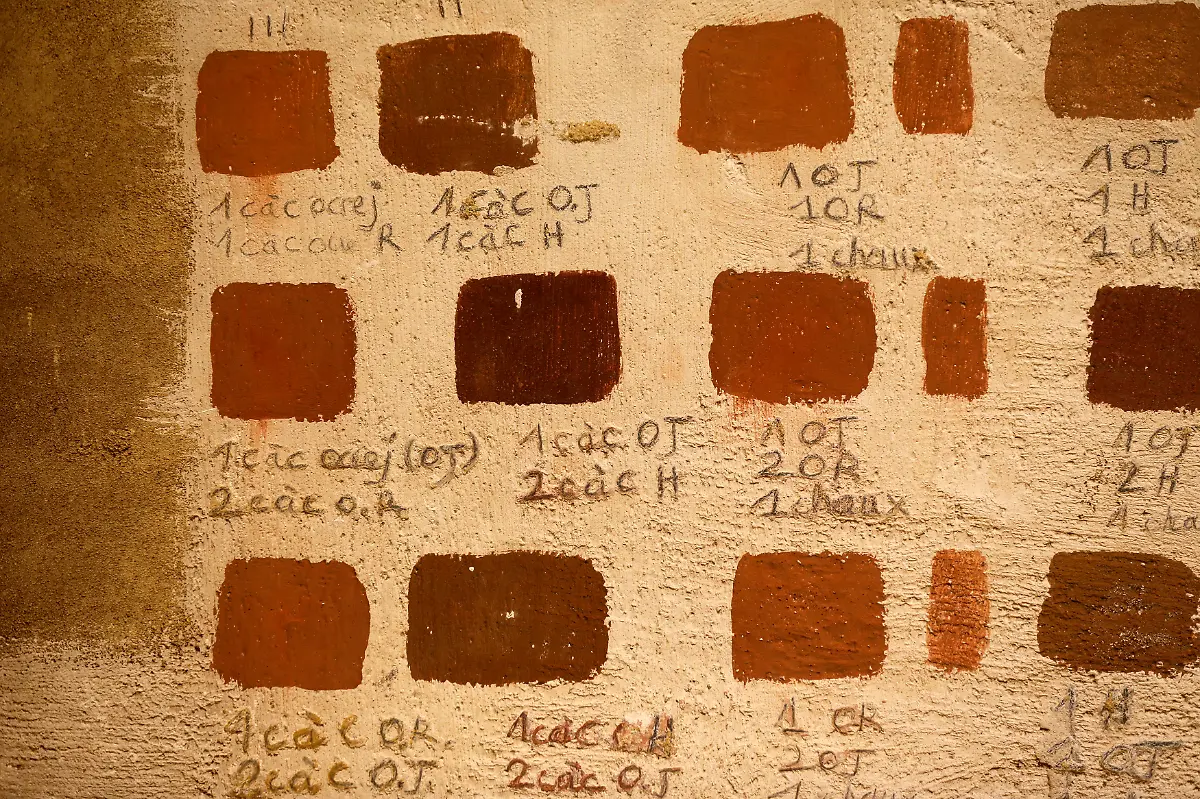 1 càc ocrej
1 càc ocre R
1 càc O.J
1 càc H
1 OJ
1 OR
1 chaux
1 OJ
1 H
1 chau
1 càc ocrej (OJ)
2 càc O.R
1 càc OJ
2 càc H
1 OJ
2 OR
1 chaux
1 OJ
2 H
1 cha
1 càc O.R.
2 càc O.J.
1 càc H
2 càc O.J
1 OR
2 OJ
1 chaux
1 H
2 OJ